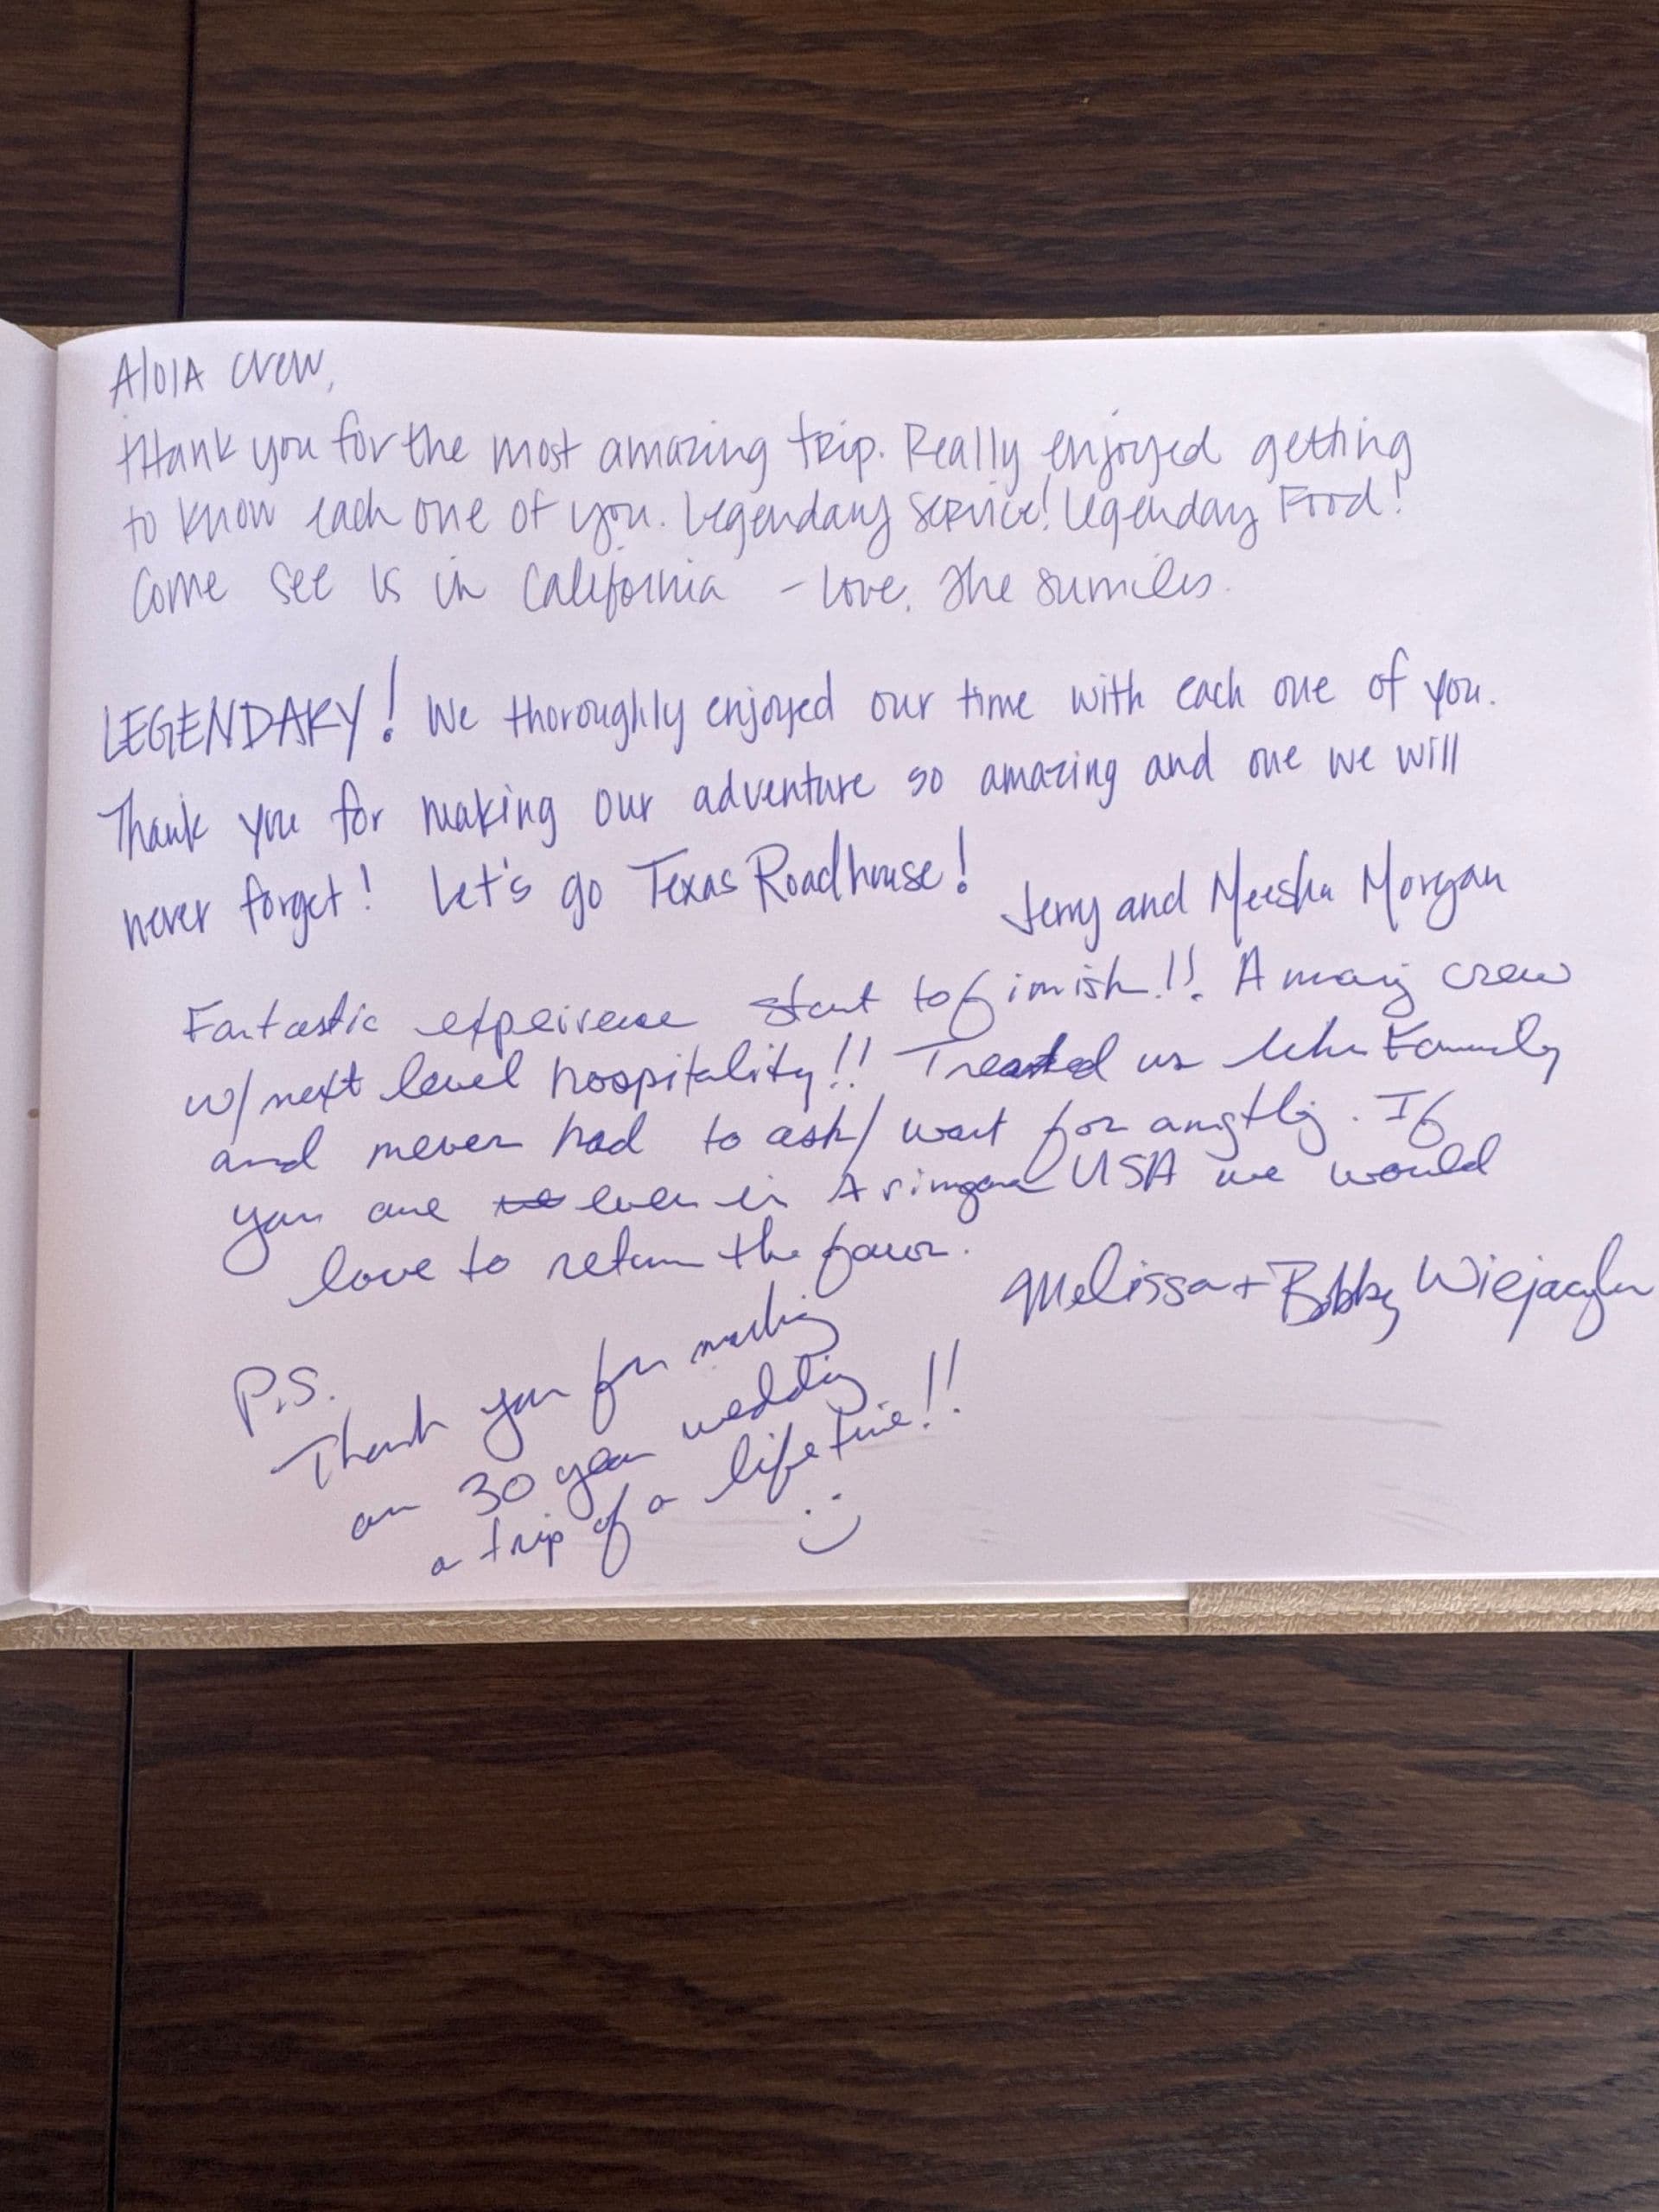 AlOIA crew,
tHank you for the most amazing trip. Really enjoyed getting
to know each one of you. Legendary Service! Legendary Food!
Come see us in California - Love, The
LEGENDARY! We thoroughly enjoyed our time with each one of you.
Thank you for making our adventure so amazing and one we will
never forget! Let's go Texas Roadhouse!
Jerry and Meesha Morgan
Fantastic start to finish!!! Amazing crew
w/ next level hospitality!! Treated us like Family
and never had to ask/ wait for anything. If
you are ever in Arizona USA we would
love to return the favor.
Melissa + Bobby
P.S.
Thank you for making
our 30 year wedding
a trip of a lifetime!!
:)